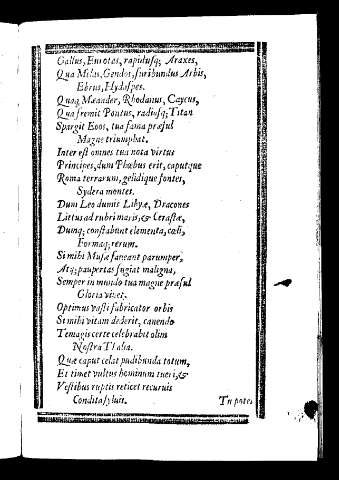 Gallus, Eurotas, rapidusq; Araxes,
Qua Milas, Gendos, furibundus Arbis,
Ebrus, Hydaspes.
Quaq; Mæander, Rhodanus, Caycus,
Qua fremit Pontus, radiusq; Titan
Spargit Eoos, tua fama præsul
Magne triumphat.
Inter est omnes tua nota virtus
Principes, dum Phœbus erit, caputque
Roma terrarum, gelidique fontes,
Sydera montes.
Dum Leo dumis Libyæ, Dracones
Littus ad rubri maris, & Cerastæ,
Dumq; constabunt elementa, cæli,
Formaq; rerum.
Si mihi Musæ faueant parumper,
Atq; paupertas fugiat maligna,
Semper in mundo tua magne præsul
Gloria viuet.
Optimus vasti fabricator orbis
Si mihi vitam dederit, canendo
Te magis certe celebrabit olim
Nostra Thalia.
Quæ caput celat pudibunda totum,
Et timet vultus hominum tueri, &
Vestibus ruptis reticet recuruis
Condita syluis. Tu potes